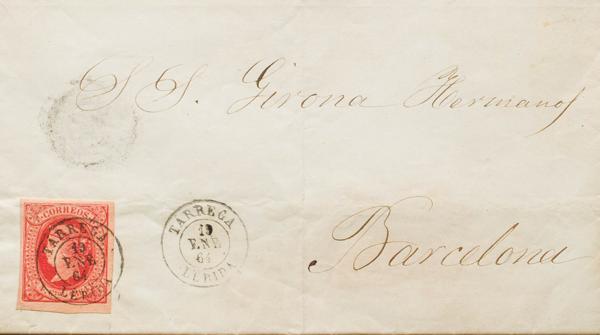 S. S. Girona Hermanos
Barcelona
CORREOS
TARREGA
19
ENE
64
LERIDA
TARREGA
19
ENE
64
LERIDA